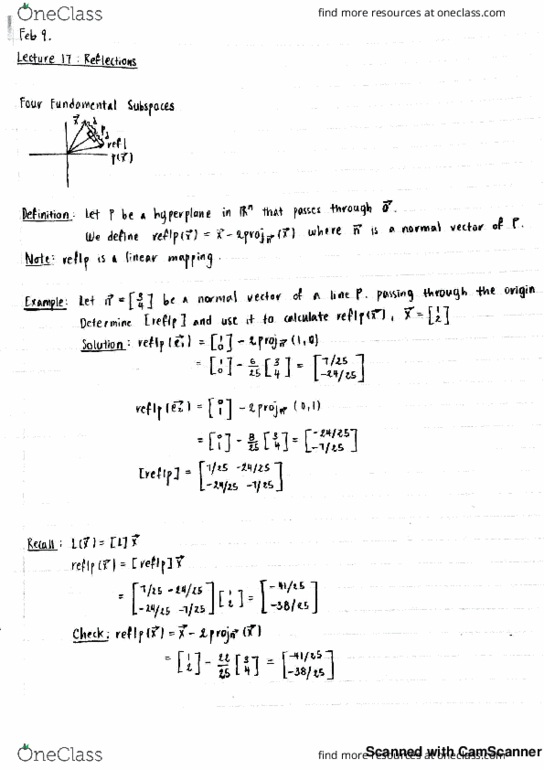 OneClass
find more resources at oneclass.com
Feb 9.
Lecture 17 : Reflections
Four Fundamental Subspaces
x⃗
refl
p(x⃗)
Definition: Let P be a hyperplane in ℝⁿ that passes through 0⃗.
We define reflp(x⃗) = x⃗ - 2proj n⃗ (x⃗) where n⃗ is a normal vector of P.
Note: reflp is a linear mapping.
Example: Let n⃗ = [3 4] be a normal vector of a line P. passing through the origin
Determine [reflp] and use it to calculate reflp(x⃗), x⃗ = [1 2]
Solution: reflp(e⃗₁) = [1 0] - 2proj n⃗ (1,0)
= [1 0] - 6/25 [3 4] = [7/25 -24/25]
reflp(e⃗₂) = [0 1] - 2proj n⃗ (0,1)
= [0 1] - 8/25 [3 4] = [-24/25 -7/25]
[reflp] = [7/25 -24/25 -24/25 -7/25]
Recall: L(x⃗) = [L]x⃗
reflp(x⃗) = [reflp]x⃗
= [7/25 -24/25 -24/25 -7/25] [1 2] = [-41/25 -38/25]
Check: reflp(x⃗) = x⃗ - 2proj n⃗ (x⃗)
= [1 2] - 22/25 [3 4] = [-41/25 -38/25]
OneClass
find more resources at oneclass.com
Scanned with CamScanner